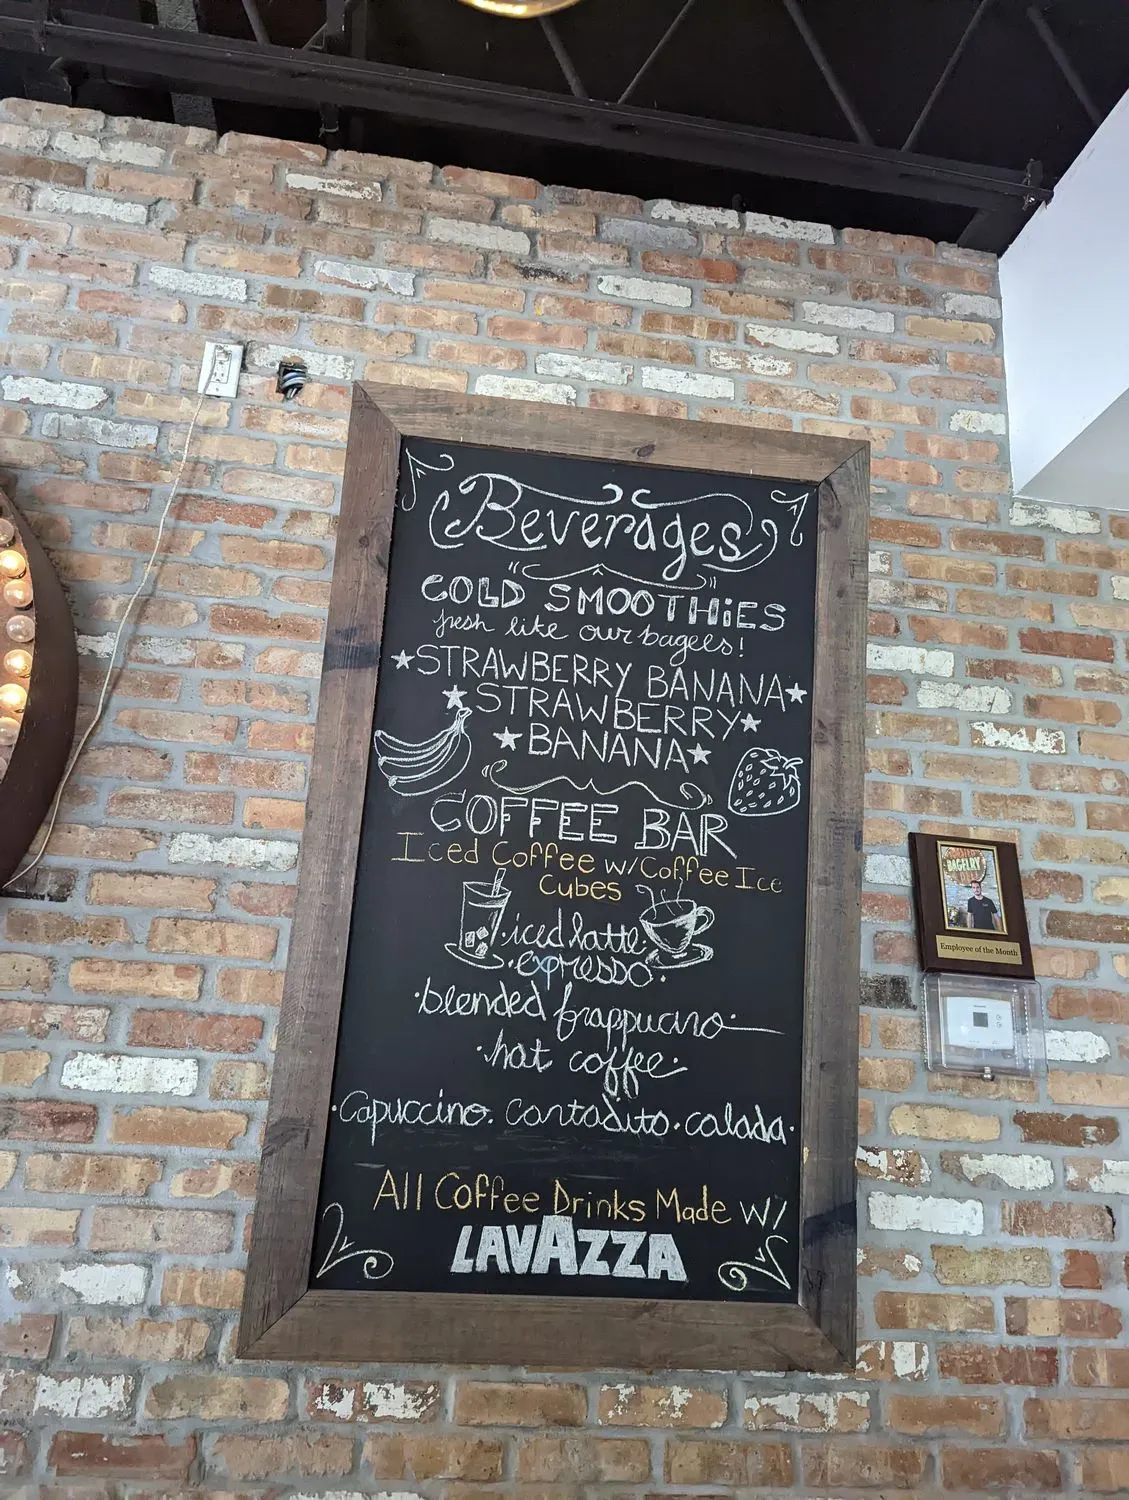 Beverages
COLD SMOOTHiES
fresh like our bagels!
★STRAWBERRY BANANA★
★STRAWBERRY★
★BANANA★
COFFEE BAR
Iced Coffee w/Coffee Ice
Cubes
·iced latte·
·expresso·
·blended frappucino·
·hot coffee·
·Capuccino·Cortadito·colada·
All Coffee Drinks Made w/
LAVAZZA
BAGELRY
Employee of the Month